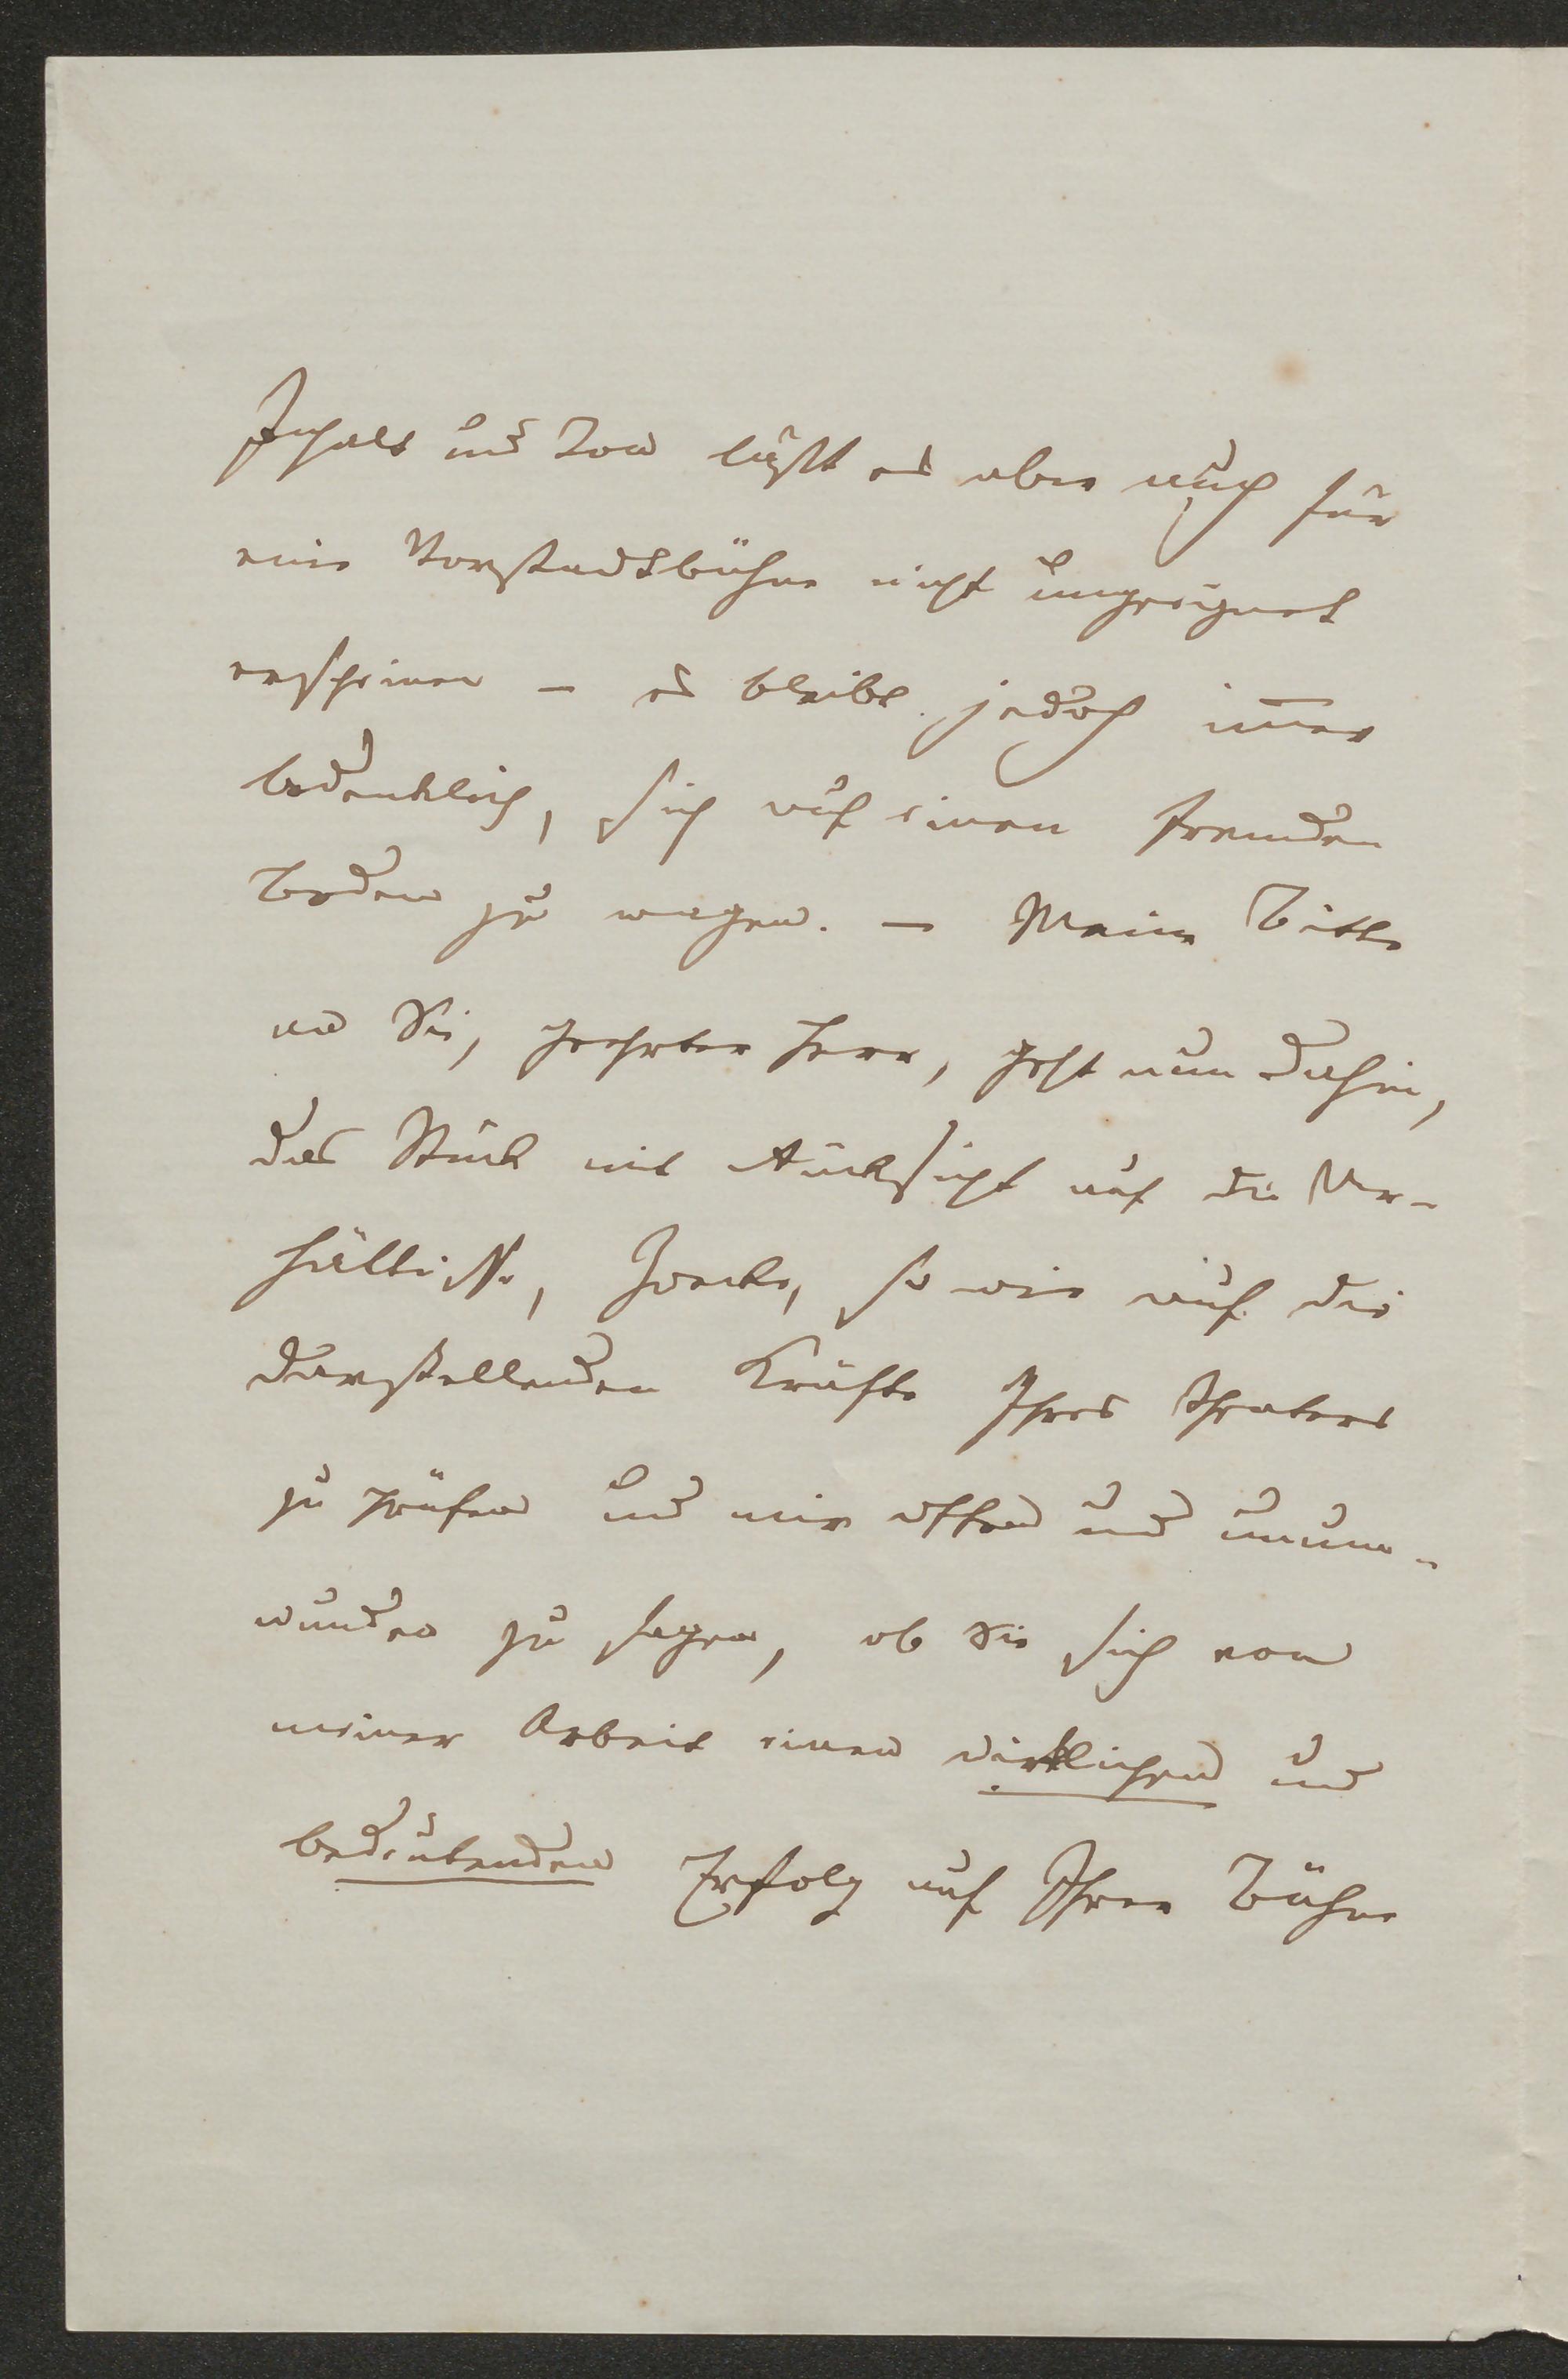 Inhalt und Ton läßt es aber auch für
eine Vorstadtbühne nicht ungeeignet
erscheinen – es bleibt jedoch im̅er
bedenklich, sich auf einen fremden
Boden zu wagen. – Meine Bitte
an Sie, geehrter Herr, geht nun dahin,
das Stück mit Rücksicht auf die Ver-
hältniße, Zwecke, so wie auf die
darstellenden Kräfte Ihres Theaters
zu prüfen und mir offen und unum-
wunden zu sagen, ob Sie sich von
meiner Arbeit einen wirklichen und
bedeutenden Erfolg auf Ihrer Bühne